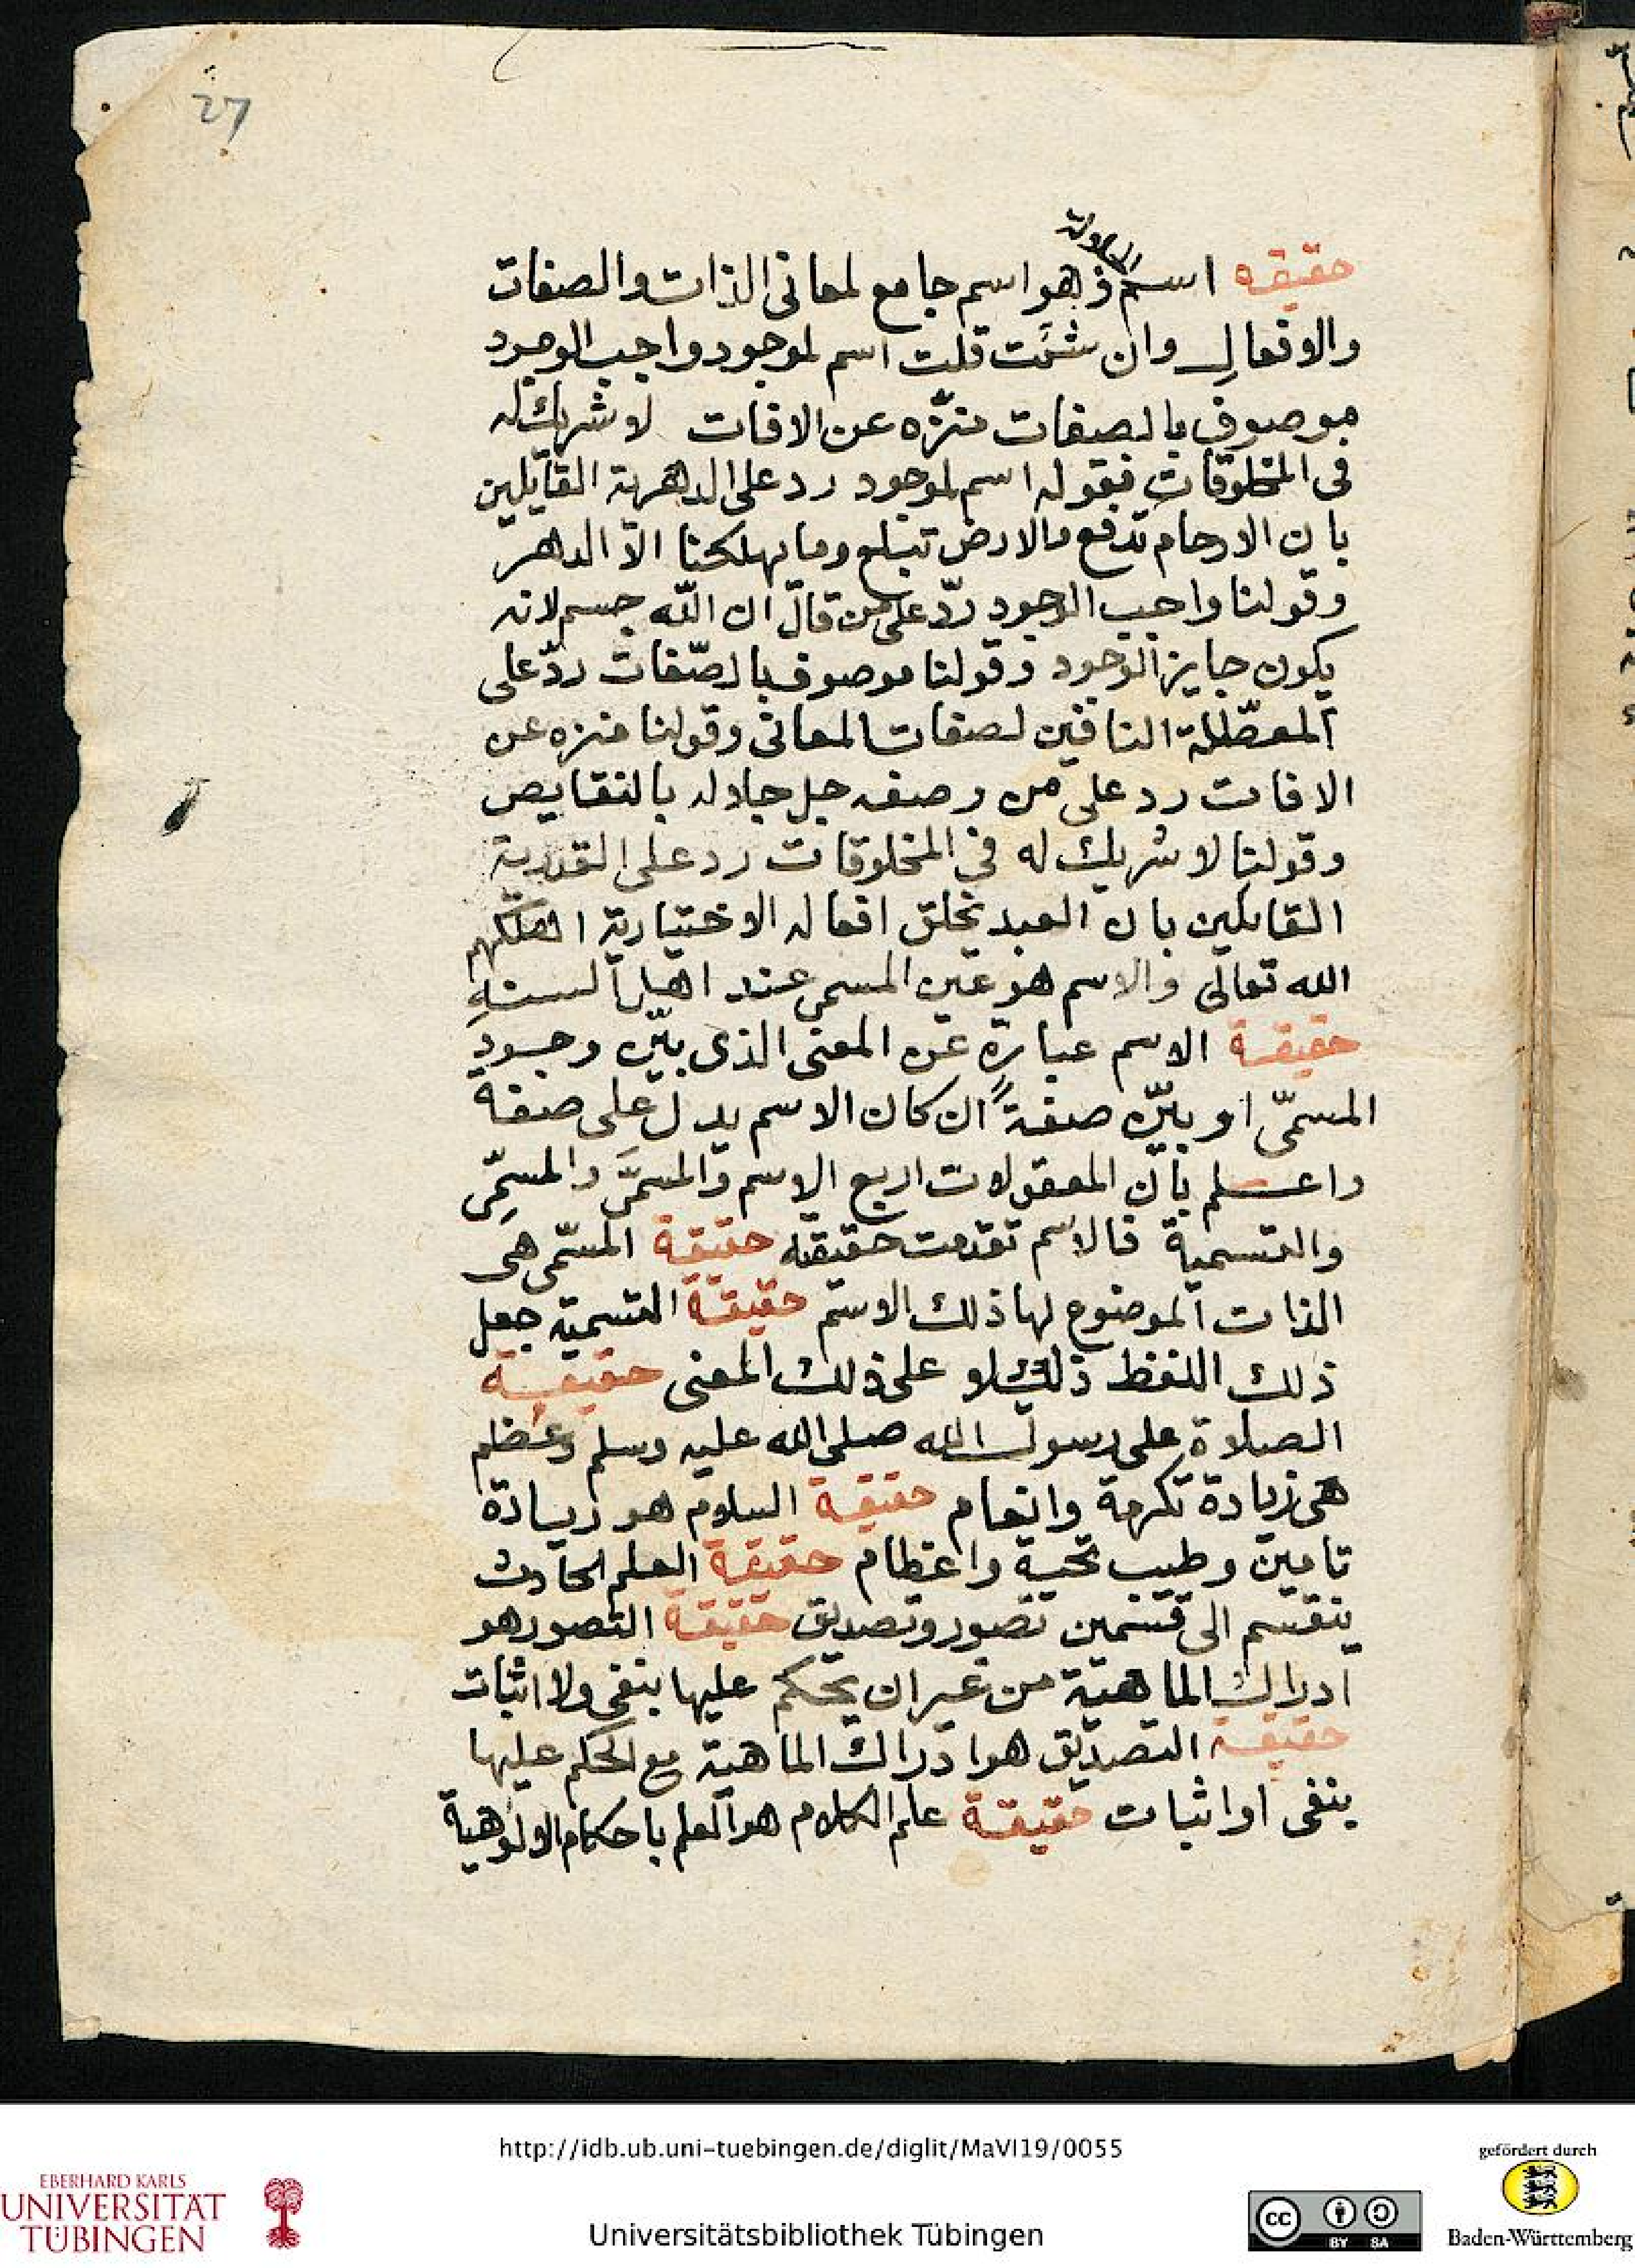 27
الجلالة
حقيقه اسم ذ هو اسم جامع لمعانى الذات والصفات
والافعال وان شئت قلت اسم لموجود واجب الوجود
موصوف بالصفات منزّه عن الافات لا شريك له
فى المخلوقات فقوله اسم لموجود رد على الدهرية القآيلين
بان الارحام تدفع والارض تبلع وما يهلكنا الاّ الدهر
وقولنا واجب الوجود ردّ على من قال ان الله جسم لانه
يكون جايز الوجود وقولنا موصوف بالصّفات ردّ على
المعطّلة النافين لصفات المعانى وقولنا منزه عن
الافات رد على من وصفه جل جلاله بالنقايص
وقولنا لا شريك له في المخلوقات رد على القدرية
القايلين بان العبد يخلق افعاله الاختيارية اهلكهم
الله تعالى والاسم هو عين المسمى عند اهل السنةِ
حقيقة الاسم عبارة عن المعنى الذى بيّن وجود
المسمّى او بيّن صفةً ان كان الاسم يدل على صفة
واعلم بان المعقولات اربع الاسم والمسمَّى والمسمِّى
والتسمية فالاسم تقدمت حقيقته حقيقة المسّمى هى
الذات الموضوع لها ذلك الاسم حقيقة التسمية جعل
ذلك اللفظ على ذلك المعنى حقيقة
الصلاة على رسول الله صلى الله عليه وسلم وعظم
هى زيادة تكرمة وانعام حقيقة السلام هو زيادة
تامين وطيب تحية واعظام حقيقة العلم الحادث
ينقسم الى قسمين تصور وتصديق حقيقة التصور هو
ادراك الماهية من غير ان يحكم عليها بنفى ولا اثبات
حقيقة التصديق هو ادراك الماهية مع الحكم عليها
بنفى او اثبات حقيقة علم الكلام هو العلم باحكام الالوهية
http://idb.ub.uni-tuebingen.de/diglit/MaVI19/0055
Universitätsbibliothek Tübingen
EBERHARD KARLS
UNIVERSITÄT
TÜBINGEN
cc BY SA
gefördert durch
Baden-Württemberg